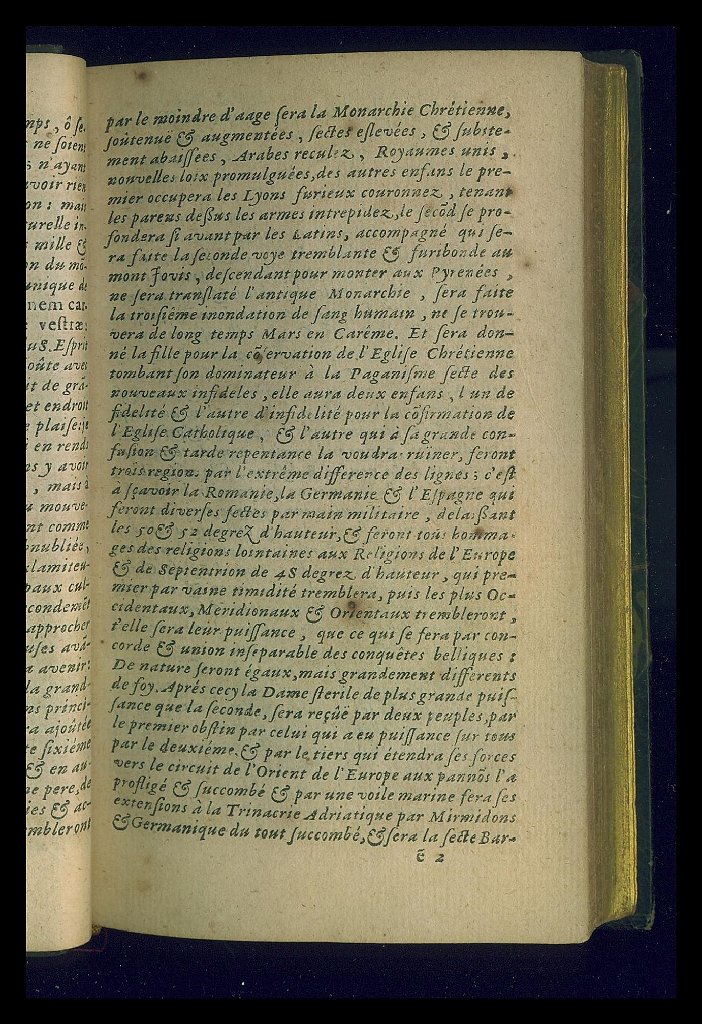 mps, ô se
ne soient
s n'ayant
voir rien
on : mais
urelle in-
mille &
n du mo-
unique de
nem car
vestræ
us. Esprit
oûte avec
t de gra-
et endroit
plaise:je
en rends
s y avoit
, mais à
u mouve-
nt comme
nubliée,
lamiteu-
paux cul-
condemēt
approcher
uses avā-
a avenir:
la grand-
ns princi-
ra ajoûtée
te sixiéme
& en au-
ne pere, de
ies & ac-
mbleront
par le moindre d'aage sera la Monarchie Chrétienne,
soûtenue & augmentées, sectes eslevées, & subite-
ment abaissées, Arabes reculez, Royaumes unis,
nouvelles loix promulguées, des autres enfans le pre-
mier occupera les Lyons furieux couronnez, tenant
les pareus deßus les armes intrepidez, le secōd se pro-
fondera si avant par les Latins, accompagné qui se-
ra faite la seconde voye tremblante & furibonde au
mont Jovis, descendant pour monter aux Pyrenées,
ne sera translaté l'antique Monarchie, sera faite
la troisiéme inondation de sang humain, ne se trou-
vera de long temps Mars en Caréme. Et sera don-
né la fille pour la cōservation de l'Eglise Chrétienne
tombant son dominateur à la Paganisme secte des
nouveaux infideles, elle aura deux enfans, l un de
fidelité & l'autre d'infidelité pour la cōfirmation de
l'Eglise Catholique, & l'autre qui à sa grande con-
fusion & tarde repentance la voudra ruiner, seront
trois region. par l'extréme difference des lignes : c'est
à sçavoir la Romanie, la Germanie & l'Espagne qui
feront diverses sectes par main militaire, delaißant
les 50 & 52 degrez d'hauteur, & feront tous homma-
ges des religions lointaines aux Religions de l'Europe
& de Septentrion de 48 degrez d'hauteur, qui pre-
mier par vaine timidité tremblera, puis les plus Oc-
cidentaux, Meridionaux & Orientaux trembleront,
t'elle sera leur puissance, que ce qui se fera par con-
corde & union inseparable des conquêtes belliques :
De nature seront égaux, mais grandement differents
de foy. Aprés cecy la Dame sterile de plus grande puis-
sance que la seconde, sera reçûë par deux peuples, par
le premier obstin par celui qui a eu puissance sur tous
par le deuxiéme, & par le tiers qui étendra ses forces
vers le circuit de l'Orient de l'Europe aux pannōs l'a
profligé & succombé & par une voile marine fera ses
extensions à la Trinacrie Adriatique par Mirmidons
& Germanique du tout succombé, & sera la secte Bar-
ē 2